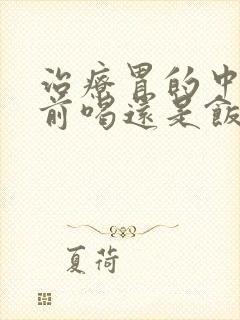 治療胃的中
前喝還是飯
夏荷